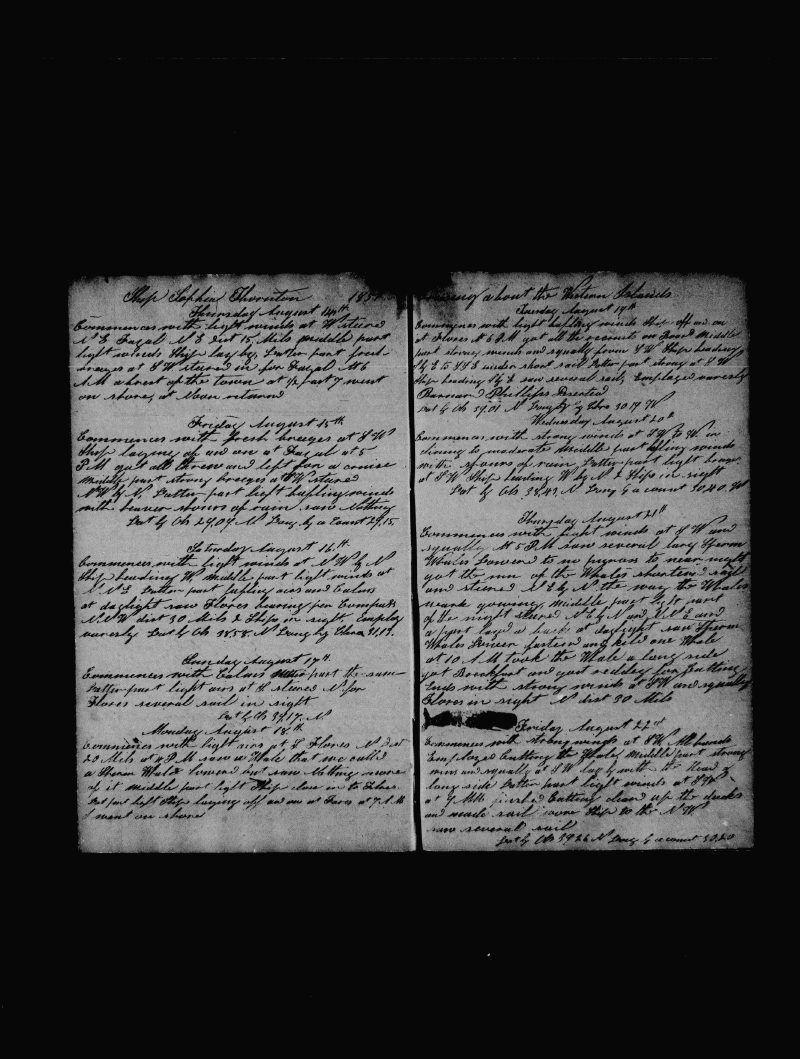 Ship Sophia Thornton 185
Thursday August 14th
Commences with light winds at W stured
N E Fayal N E dist 15 Mils middle part
light winds Ship lay by, Latter part fresh
breezes at S W stured in for Fayal At 6
A M abrest of the town at 1/2 past 7 went
on shore, at Noon returned
Friday August 15th
Commences with fresh breezes at S W
Ship laying of and on at Fayal at 5
P M got all threw and left for a cruise
Middle part strong breezes at S W stured
N W by N Latter part light bafling winds
with heaver showers of rain saw Nothing
Lat by Ob 39.07 N Long by account 29.15
Saturday August 16th
Commences with light winds at N W by N
Ship heading W Middle part light winds at
N N E Latter part bafling airs and Calms
at daylight saw Flores bearing per Compass
N N W dist 30 Mils 2 Ships in sight Employ
variously Lat by Ob 38.58 N Long by Chro 31.13
Sunday August 17th
Commences with Calms part the same
Latter part light airs at stured N for
Flores several sail in sight
Lat by Ob 39.17 N
Monday August 18th
Commences with light airs at E Flores N dist
20 Mils at P M saw a Wale that we called
a Sperm Wale lowerd but saw Nothing more
of it middle part light Ship close in to Flores
Lat part light Ship laying off and on at Flores at 7 A M
went on shore
about the Western Islands
Tuesday August 19th
Commences with light bafling winds Ship off and on
at Flores at 6 P M got all the recruits on Board Middle
part strong winds and squally from S W Ship heading
S by E to S S E under short sail Latter part strong at S W
Ship heading S by E saw several sails Employed variously
Barnard Phillips Deserted
Lat by Ob 39.01 N Long by Chro 30.17 W
Wednesday August 20th
Commences with strong winds at S W to W in
clining to moderate Middle part bafling winds
with showers of rain Latter part light breezes
at S W Ship heading W by N 2 Ships in sight
Lat by Obs 39.43 N Long by account 30.40 W
Thursday August 21st
Commences with light winds at S W and
squally At 5 P M saw several large Sperm
Whales Lowered to no purpose to near night
got the run of the Whales shortend sail
and stured N E by N the way the Whales
ware gowing, middle part light part
of the night stured N E by N and N N E and
a part layed a back at daylight saw Sperm
Whales Lower fastend and kild one Whale
at 10 A M took the Whale a long side
got Breakfast and got reddy for Cutting
Ends with strong winds at S W and squally
Flores in sight N dist 30 Mils
Friday August 22nd
Commences with strong winds at S W All hands
Employed Cutting the Whale Middle part strong
wins and squally at S W lay by with the Head a
long side Latter part light winds at S W
at 9 A M finished Cutting cleard up the decks
and made sail wore Ship to the N W
saw several sail
Lat by Ob 39.26 N Long by account 30.20